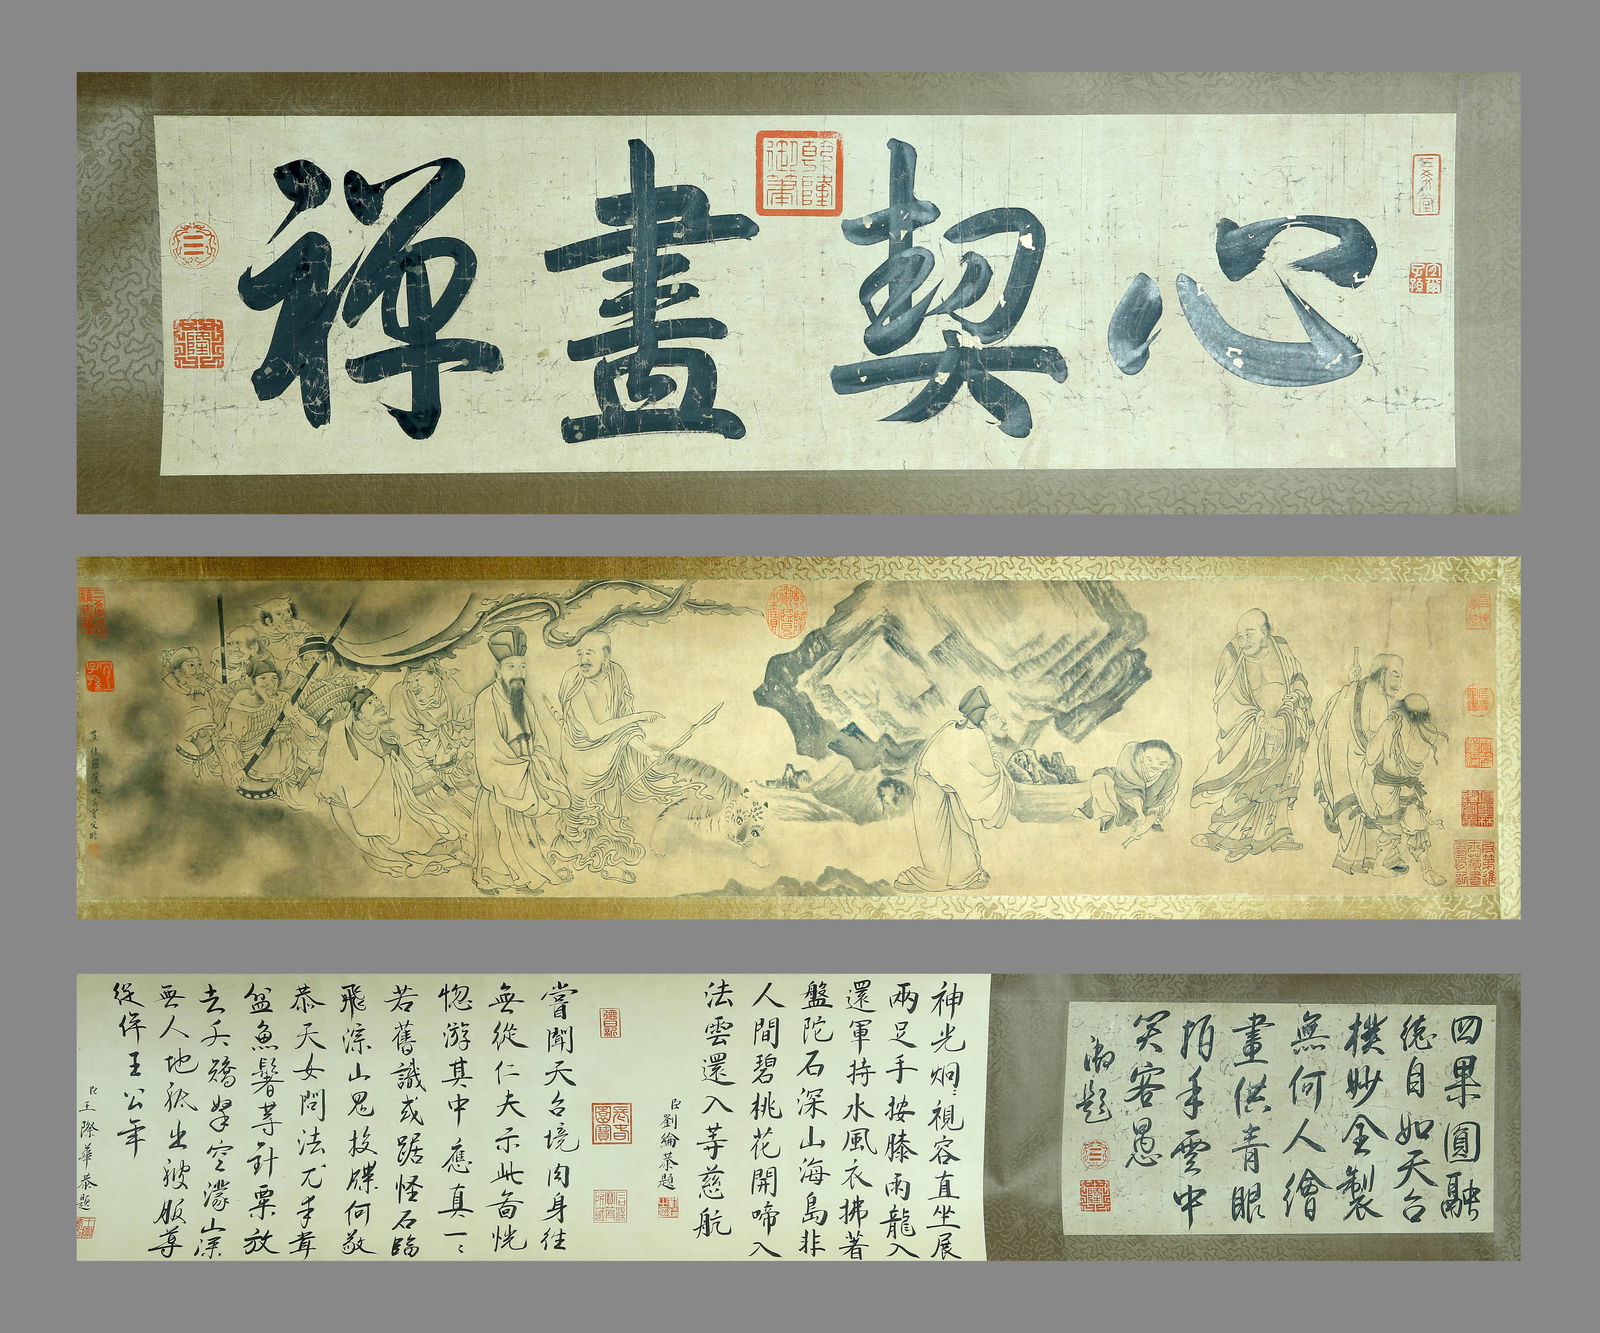 心契畫禪
乾隆御筆
四果圓融
德自如天台
樸眇全製
無何人繪
畫供青眼
拍手雲中
笑容愚
御題
神光炯〻視容直坐展
兩足手按膝雨龍入
還軍持水風衣拂著
盤陀石深山海島非
人間碧桃花開啼入
法雲還入等慈航
臣劉綸恭題
嘗聞天台境肉身往
無從仁夫示此畣恍
惚游其中應真一〻
若舊識或踞怪石臨
飛淙山鬼投牒何敬
恭天女問法尤丰茸
盆魚鬐等針粟放
去夭矯拏空濛山深
無人地
從伴王公年
臣王際華恭題